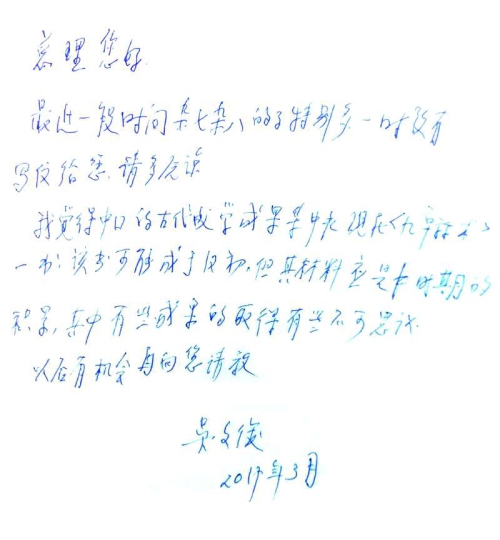 总理您好
最近一段时间杂七杂八的事特别多,一时没有
写信给您,请多原谅
我觉得中国的古代数学成果集中在现在《九章算术》
一书:该书可能成于汉初,但其材料应是长时期的
积累,其中有些成果的取得有些不可思议
以后有机会再向您请教
吴文俊
2017年3月